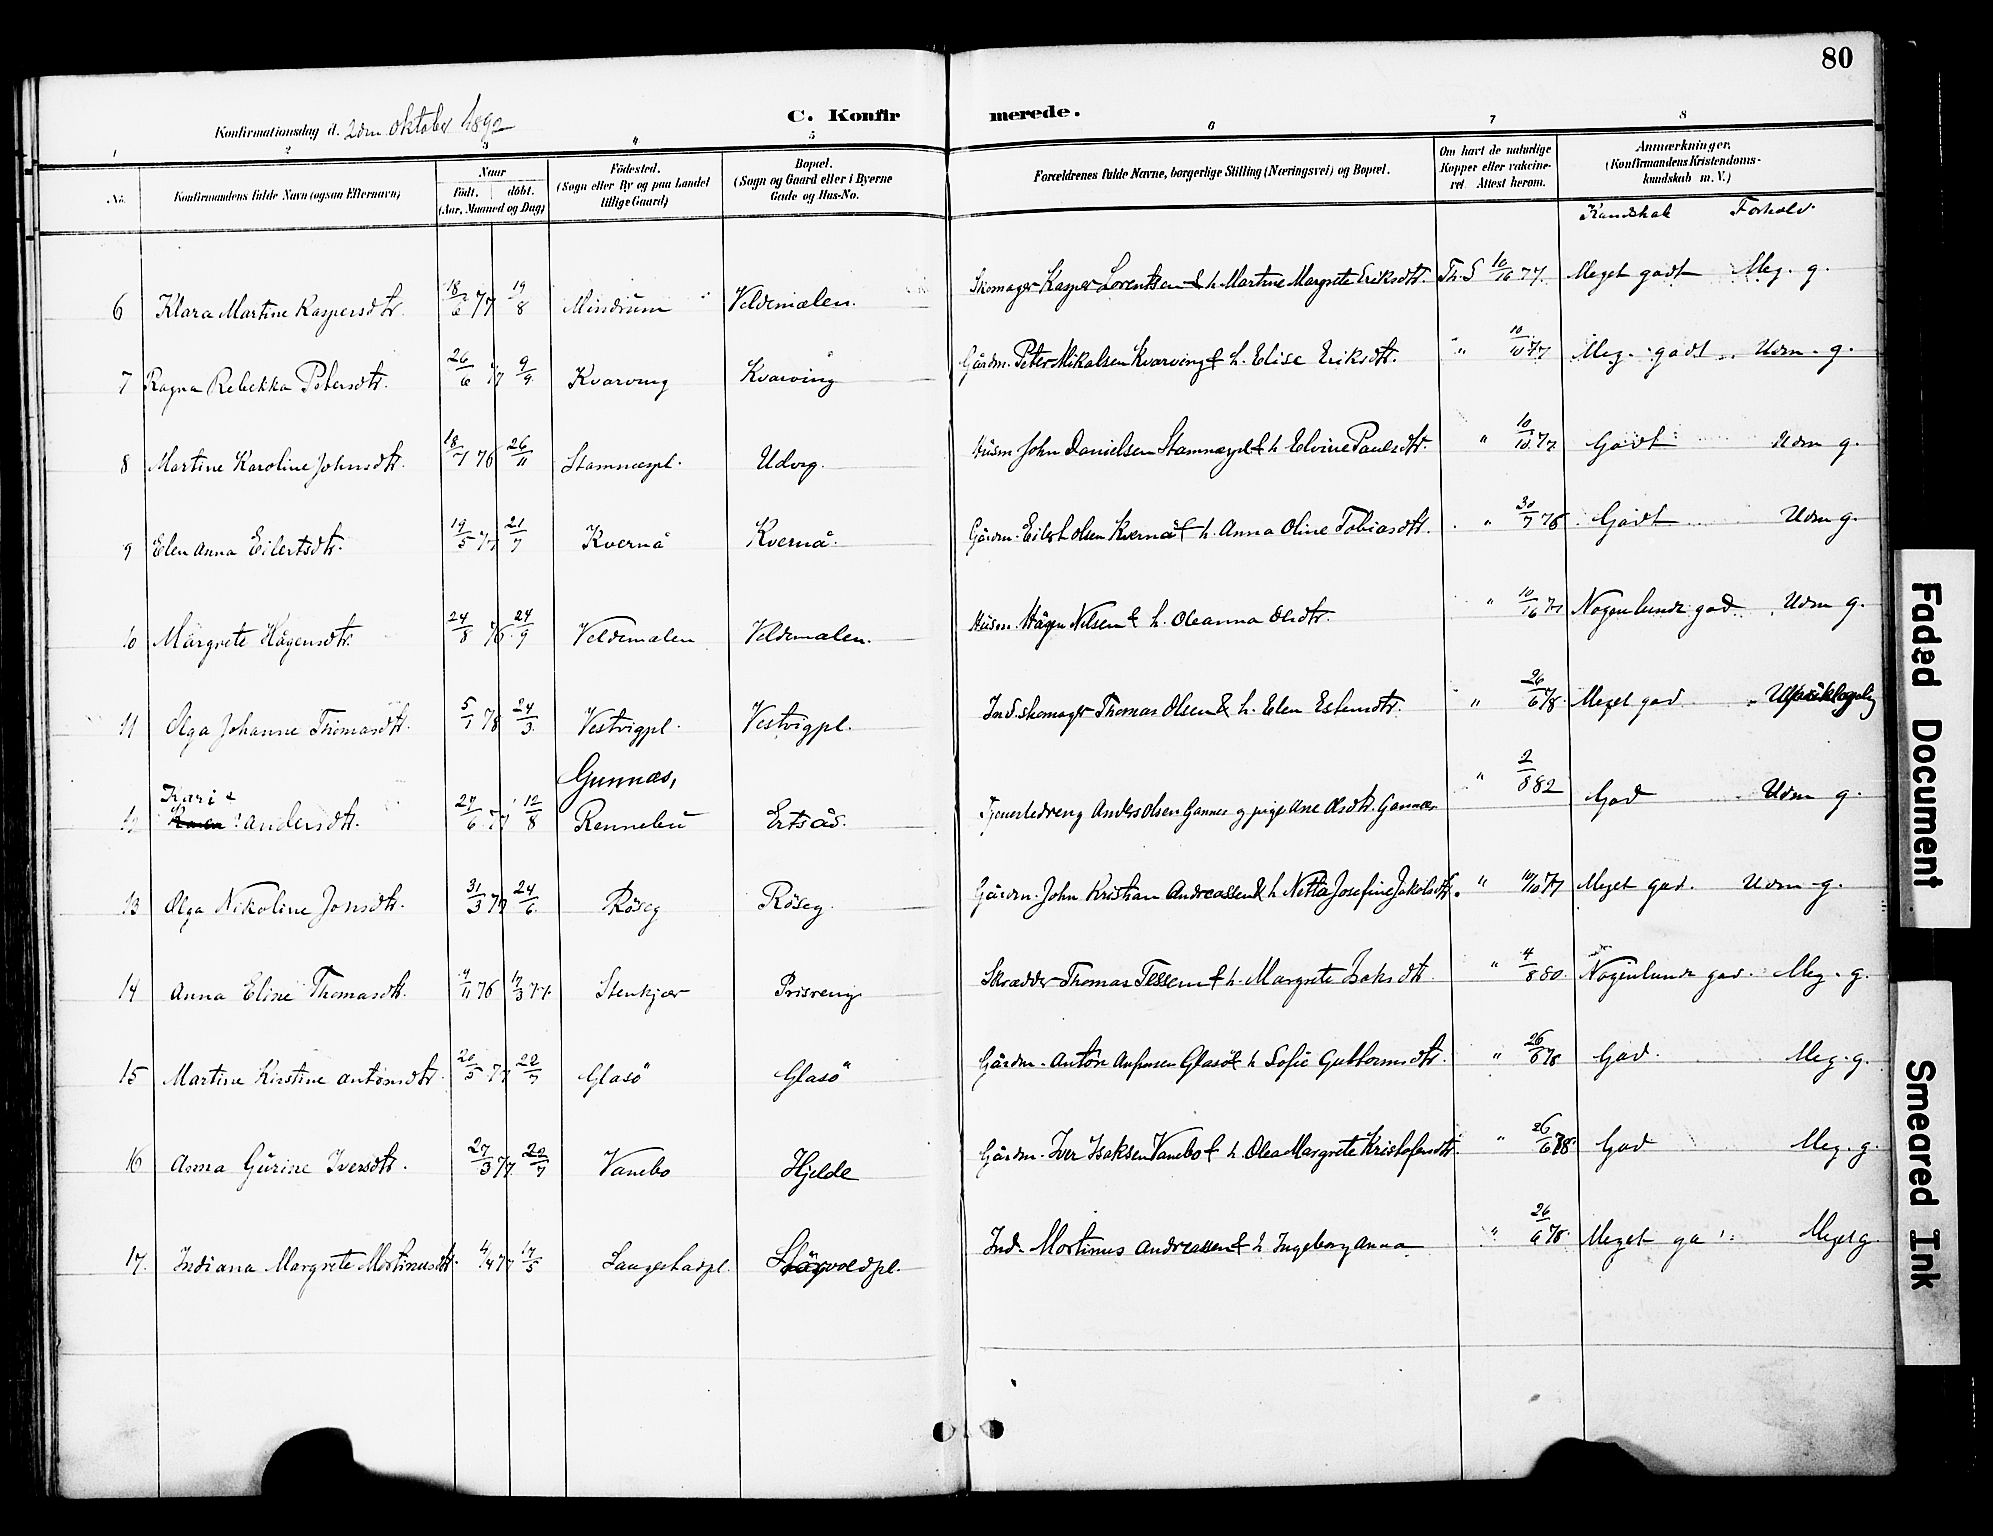 80
Konfirmationsdag d. 2den Oktober 1892
C. Konfirmerede.
1 2 3 4 5 6 7 8
No.
Konfirmandens fulde Navn (ogsaa Efternavn)
Naar
födt. döbt.
(Aar, Maaned og Dag)
Födested.
(Sogn eller By og paa Landet
tillige Gaard)
Bopæl.
(Sogn og Gaard eller i Byerne
Gade og Hus-No.
Forældrenes fulde Navne, borgerlige Stilling (Næringsvei) og Bopæl.
Om havt de naturlige
Kopper eller vakcine-
ret. Attest herom.
Anmærkninger.
(Konfirmandens Kristendoms-
kundskab m. V.)
Kundskab Forhold
6 Klara Martine Kaspersdtr. 18/6 77 19/8 Mindrum Veldemælen. Skomager Kasper Lorentsen & h. Martine Margrete Eriksdtr. Th. S 10/10 77. Meget godt Meg. g.
7 Ragna Rebekka Petersdtr. 26/6 77 9/9 Kvarving Kvarving Gårdm. Peter Mikalsen Kvarving & h. Elise Eriksdtr. " 10/10 77 Meg. godt Udm. g.
8 Martine Karoline Johnsdtr. 18/7 76 26/11 Stamnæspl. Udvig. Husm John Danielsen Stamnæspl & h Elvine Paulsdtr. " 10/10 77 Godt Udm g.
9 Elen Anna Eilertsdtr. 19/5 77 21/7 Kvernå Kvernå. Gårdm. Eilert Olsen Kvernå & h. Anna Oline Tobiasdtr. " 30/7 78. Godt Udm g.
10 Margrete Hågensdtr. 24/8 76. 24/9 Veldemælen Veldemælen. Husm. Hågen Nilsen & h. Oleanna Olsdtr. " 10/10 77 Nogenlunde god. Udm g.
11 Olga Johanne Thomasdtr. 5/1 78 24/3. Vestvigpl. Vestvigpl. Ind. skomager Thomas Olsen & h. Elen Estensdtr. " 26/6 78. Meget god Upåklagelig
12 Kari Andersdtr. 27/6 77 12/8 Gunnæs, Rennebu Ertsås. Tjenestedreng Anders Olsen Gannes og pige Ane Olsdtr. Gannæs " 2/8 82 God Udm g.
13 Olga Nikoline Jonsdtr. 31/3 77 24/6. Röseg Röseg. Gårdm. John Kristian Andreassen & h Netta Josefine Jakobsdtr. " 10/10 77 Meget god. Udm g.
14 Anna Eline Thomasdtr. 9/11 76 17/3 77. Stenkjær Prisreng Skrædder Thomas Tessem & h. Margrete Isaksdtr. " 4/8 80. Nogenlunde god. Meg. g.
15 Martine Kirstine Antonsdtr. 20/5 77 22/7 Glasö Glasö Gårdm. Anton Anfinsen Glasö & h Sofie Guttormsdtr. " 26/6 78 God. Meg. g.
16 Anna Gurine Iversdtr. 27/3 77 22/7 Vanebo Hjelde Gårdm. Iver Isaksen Vanebo & h. Olea Margrete Kristofersdtr. " 26/6 78 God Meg. g.
17. Indiana Margrete Mortinusdtr. 4/4 77 17/5 Langestadpl. Ind. Mortinus Andreassen & h Ingeborg Anna " 26/6 78. Meget go Meget g.
Faded Document
Smeared Ink